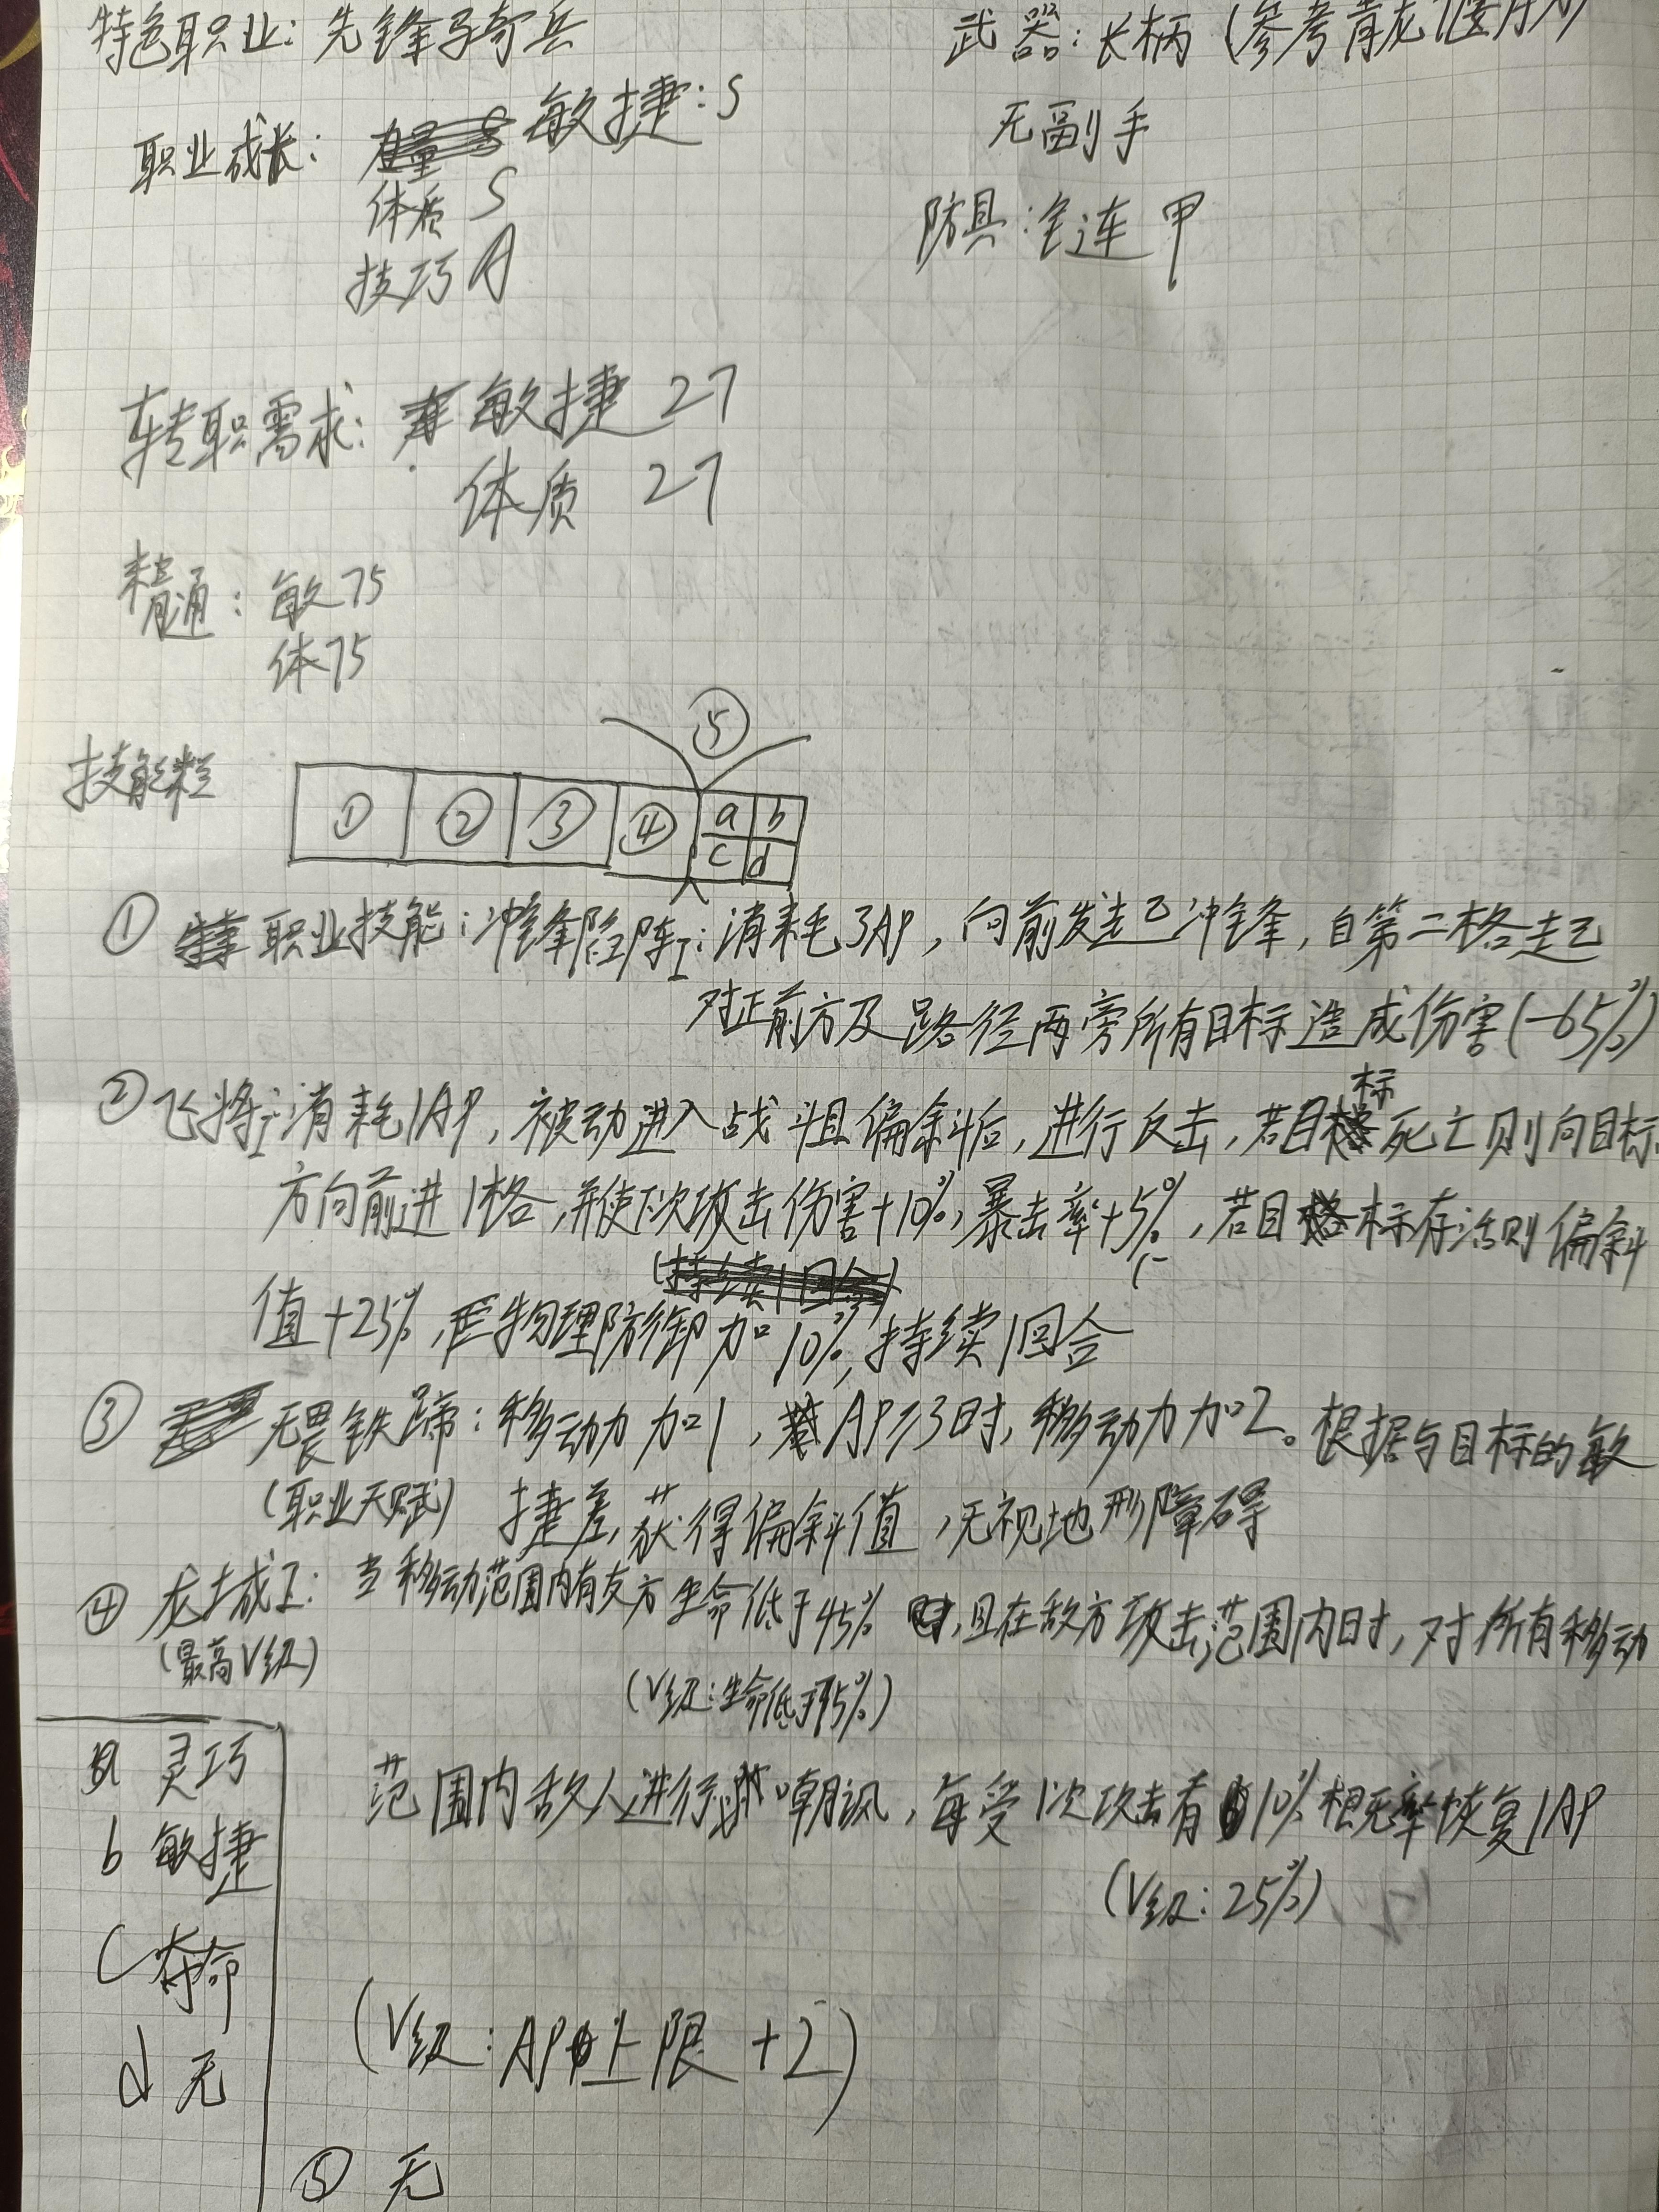 特色职业：先锋弓奇兵
武器：长柄（参考青龙偃月刀）
职业成长：
敏捷：S
无副手
体质 S
防具：全连甲
技巧 A
转职需求：敏捷 27
体质 27
精通：敏75
体75
⑤
技能栏
① ② ③ ④ a b
c d
① 职业技能：冲锋陷阵I：消耗3AP，向前发起冲锋，自第二格起
对正前方及路径两旁所有目标造成伤害（-65%）
②飞将I：消耗1AP，被动进入战斗且偏斜后，进行反击，若目标死亡则向目标
方向前进1格，并使下次攻击伤害+10%，暴击率+5%，若目标存活则偏斜
（持续1回合）
值+25%，物理防御加10%，持续1回合
③ 无畏铁蹄：移动力加1，AP≥3时，移动力加2。根据与目标的敏
（职业天赋） 捷差，获得偏斜值，无视地形障碍
④ 龙城I：当移动范围内有友方生命低于45%，且在敌方攻击范围内时，对所有移动
（最高V级）
（V级：生命低于75%）
a 灵巧
范围内敌人进行嘲讽，每受1次攻击有10%概率恢复1AP
b 敏捷
（V级：25%）
c 夺命
（V级：AP上限+2）
d 无
⑤ 无